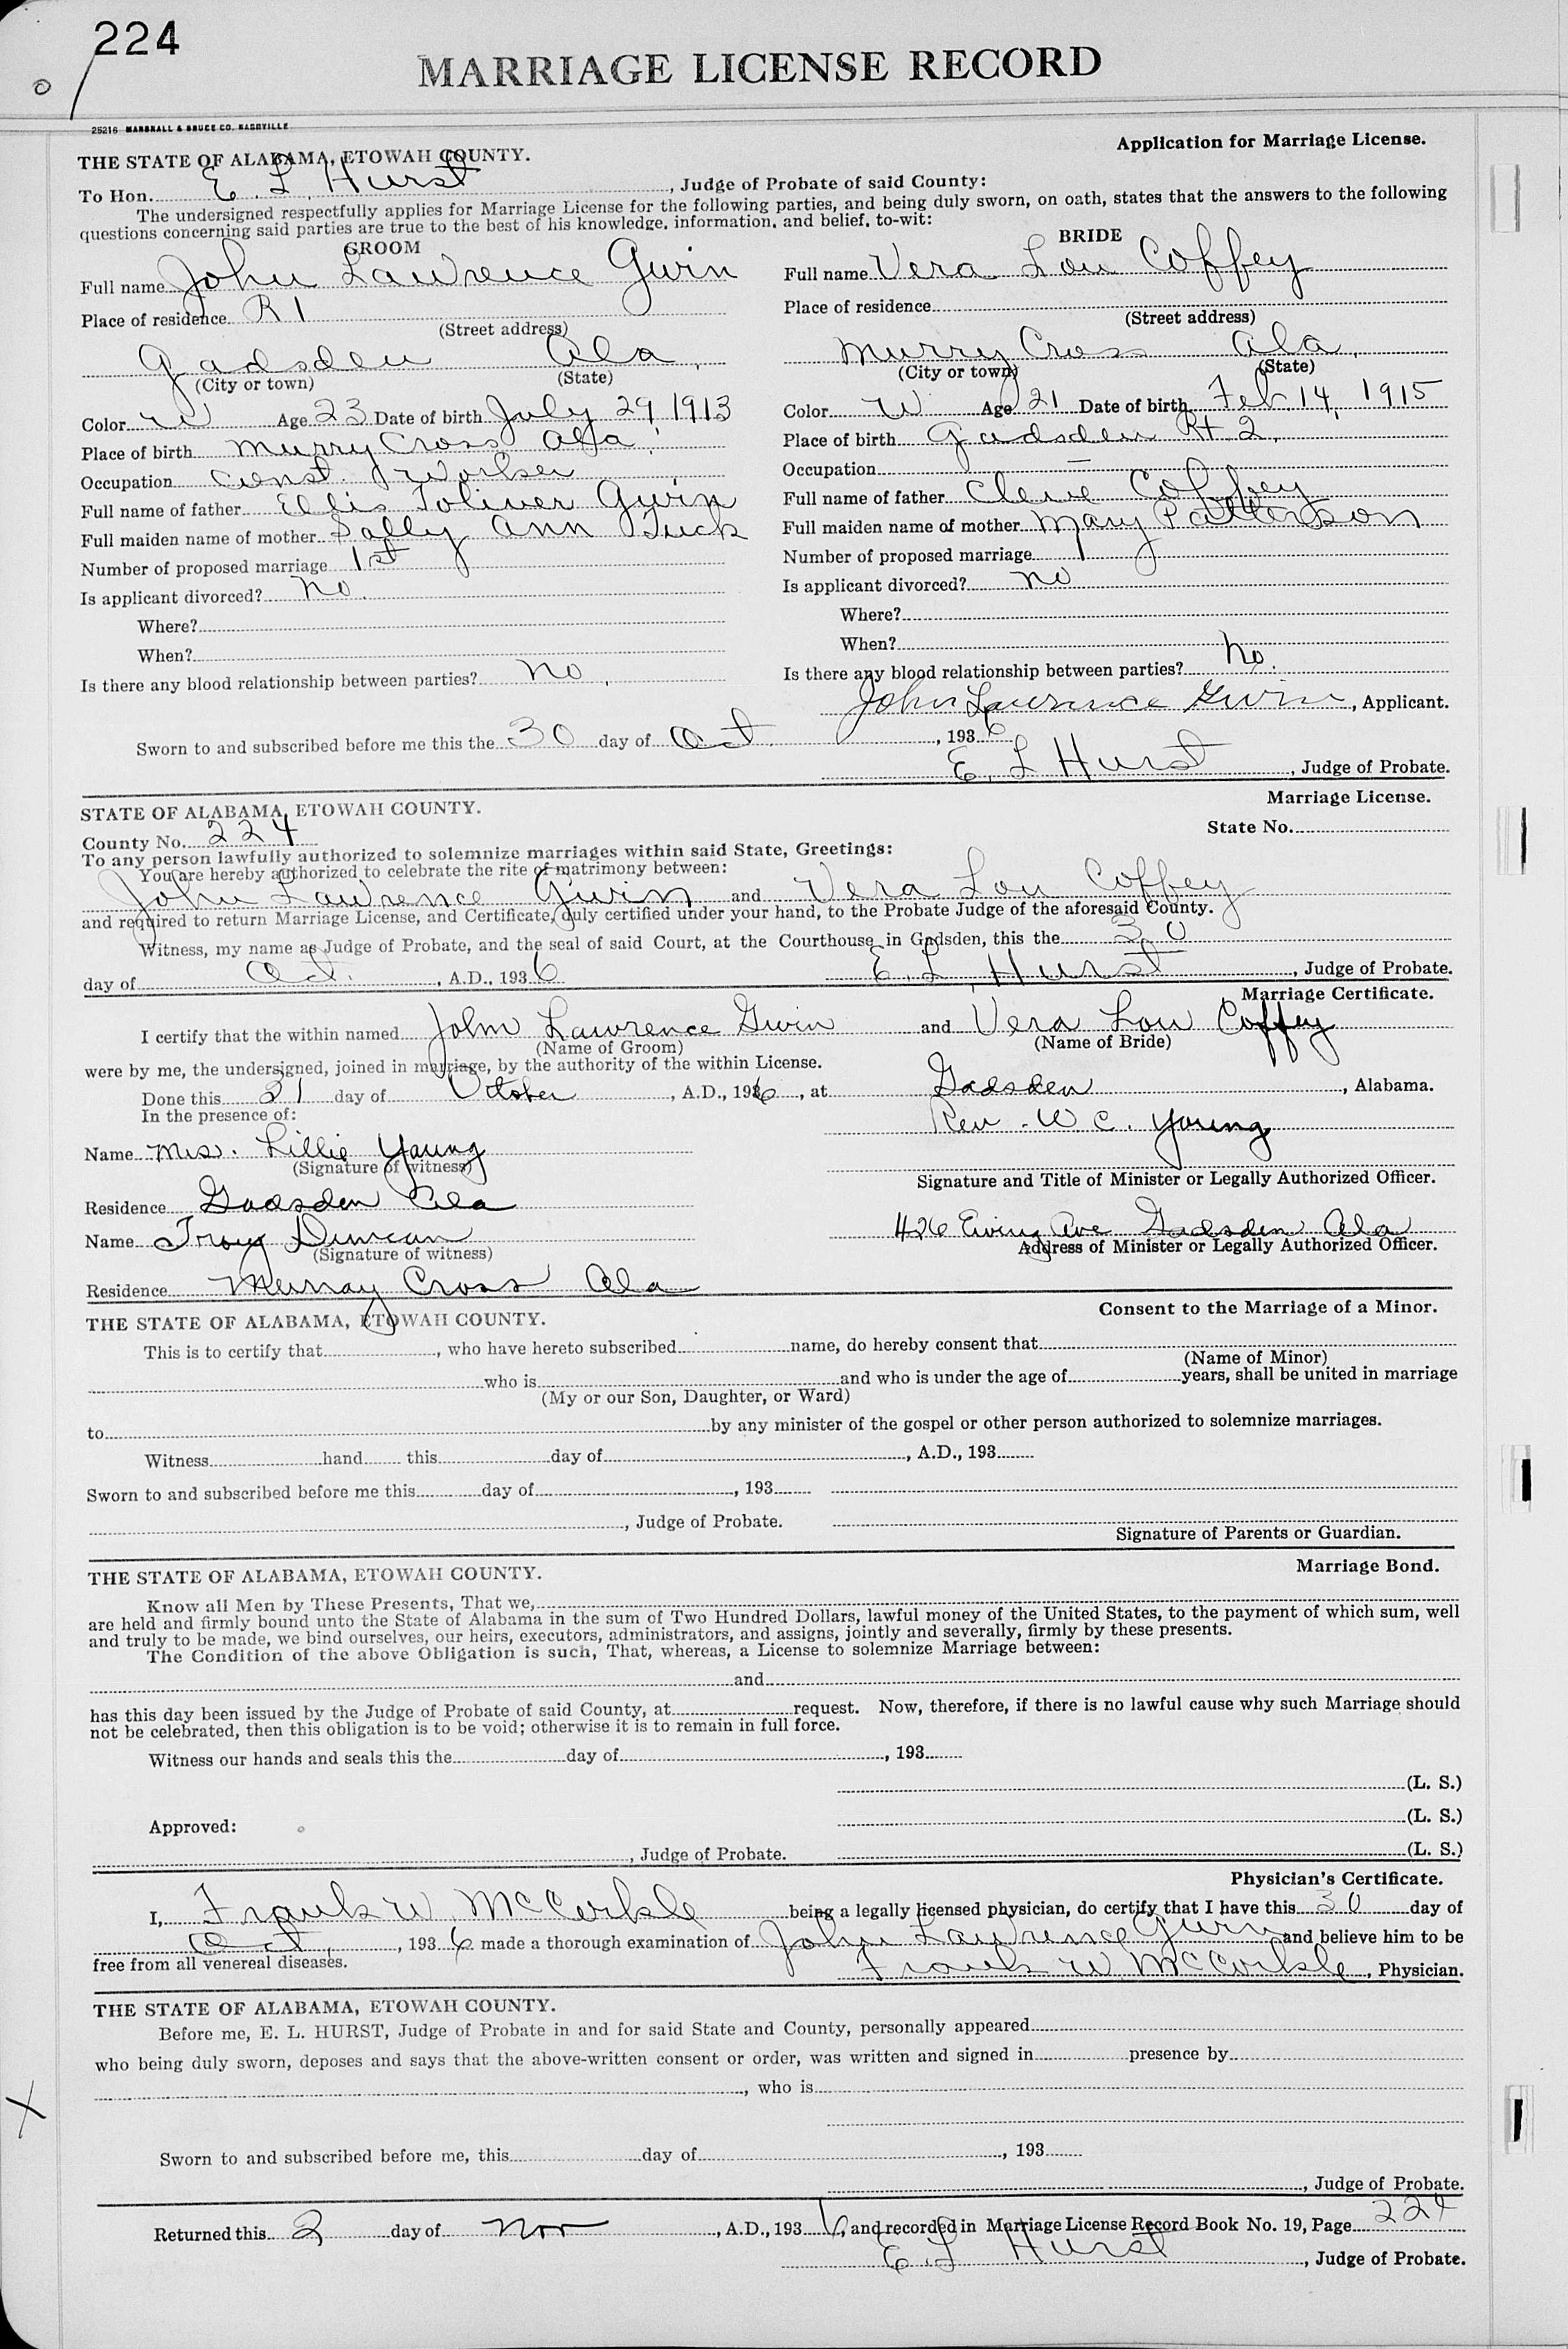 224
MARRIAGE LICENSE RECORD
25216 MARSHALL & BRUCE CO. NASHVILLE
THE STATE OF ALABAMA, ETOWAH COUNTY. Application for Marriage License.
To Hon. E. L. Hurst, Judge of Probate of said County:
The undersigned respectfully applies for Marriage License for the following parties, and being duly sworn, on oath, states that the answers to the following
questions concerning said parties are true to the best of his knowledge, information, and belief, to-wit:
GROOM
Full name John Lawrence Gwin
Place of residence R 1
(Street address)
Gadsden Ala,
(City or town) (State)
Color W Age 23 Date of birth July 29, 1913
Place of birth Murry Cross Ala
Occupation Const. Worker
Full name of father Ellis Toliver Gwin
Full maiden name of mother Sally Ann Tuck
Number of proposed marriage 1st
Is applicant divorced? No.
Where?
When?
Is there any blood relationship between parties? No.
BRIDE
Full name Vera Lou Coffey
Place of residence
(Street address)
Murry Cross Ala,
(City or town) (State)
Color W Age 21 Date of birth Feb 14, 1915
Place of birth Gadsden Rt 2,
Occupation —
Full name of father Cleve Coffey
Full maiden name of mother Mary Patterson
Number of proposed marriage
Is applicant divorced? No
Where?
When?
Is there any blood relationship between parties? No.
John Lawrence Gwin, Applicant.
Sworn to and subscribed before me this the 30 day of Oct., 1936
E. L Hurst, Judge of Probate.
STATE OF ALABAMA, ETOWAH COUNTY. Marriage License.
County No. 224 State No.
To any person lawfully authorized to solemnize marriages within said State, Greetings:
You are hereby authorized to celebrate the rite of matrimony between:
John Lawrence Gwin and Vera Lou Coffey
and required to return Marriage License, and Certificate, duly certified under your hand, to the Probate Judge of the aforesaid County.
Witness, my name as Judge of Probate, and the seal of said Court, at the Courthouse in Gadsden, this the 30
day of Oct., A.D., 1936 E. L. Hurst, Judge of Probate.
Marriage Certificate.
I certify that the within named John Lawrence Gwin and Vera Lou Coffey
(Name of Groom) (Name of Bride)
were by me, the undersigned, joined in marriage, by the authority of the within License.
Done this 31 day of October, A.D., 1936, at Gadsden, Alabama.
In the presence of: Rev. W C. Young
Name Mrs. Lillie Young
(Signature of witness) Signature and Title of Minister or Legally Authorized Officer.
Residence Gadsden Ala
Name Troy Duncan 426 Ewing Ave Gadsden Ala
(Signature of witness) Address of Minister or Legally Authorized Officer.
Residence Murray Cross Ala
THE STATE OF ALABAMA, ETOWAH COUNTY. Consent to the Marriage of a Minor.
This is to certify that, who have hereto subscribed name, do hereby consent that
(Name of Minor)
who is and who is under the age of years, shall be united in marriage
(My or our Son, Daughter, or Ward)
to by any minister of the gospel or other person authorized to solemnize marriages.
Witness hand this day of, A.D., 193
Sworn to and subscribed before me this day of, 193
, Judge of Probate.
Signature of Parents or Guardian.
THE STATE OF ALABAMA, ETOWAH COUNTY. Marriage Bond.
Know all Men by These Presents, That we,
are held and firmly bound unto the State of Alabama in the sum of Two Hundred Dollars, lawful money of the United States, to the payment of which sum, well
and truly to be made, we bind ourselves, our heirs, executors, administrators, and assigns, jointly and severally, firmly by these presents.
The Condition of the above Obligation is such, That, whereas, a License to solemnize Marriage between:
and
has this day been issued by the Judge of Probate of said County, at request. Now, therefore, if there is no lawful cause why such Marriage should
not be celebrated, then this obligation is to be void; otherwise it is to remain in full force.
Witness our hands and seals this the day of, 193
(L. S.)
Approved: (L. S.)
, Judge of Probate. (L. S.)
Physician's Certificate.
I, Frank W McCorkle being a legally licensed physician, do certify that I have this 30 day of
Oct., 1936 made a thorough examination of John Lawrence Gwin and believe him to be
free from all venereal diseases. Frank W McCorkle, Physician.
THE STATE OF ALABAMA, ETOWAH COUNTY.
Before me, E. L. HURST, Judge of Probate in and for said State and County, personally appeared
who being duly sworn, deposes and says that the above-written consent or order, was written and signed in presence by
, who is
Sworn to and subscribed before me, this day of, 193
, Judge of Probate.
Returned this 2 day of Nov, A.D., 1936, and recorded in Marriage License Record Book No. 19, Page 224
E. L Hurst, Judge of Probate.